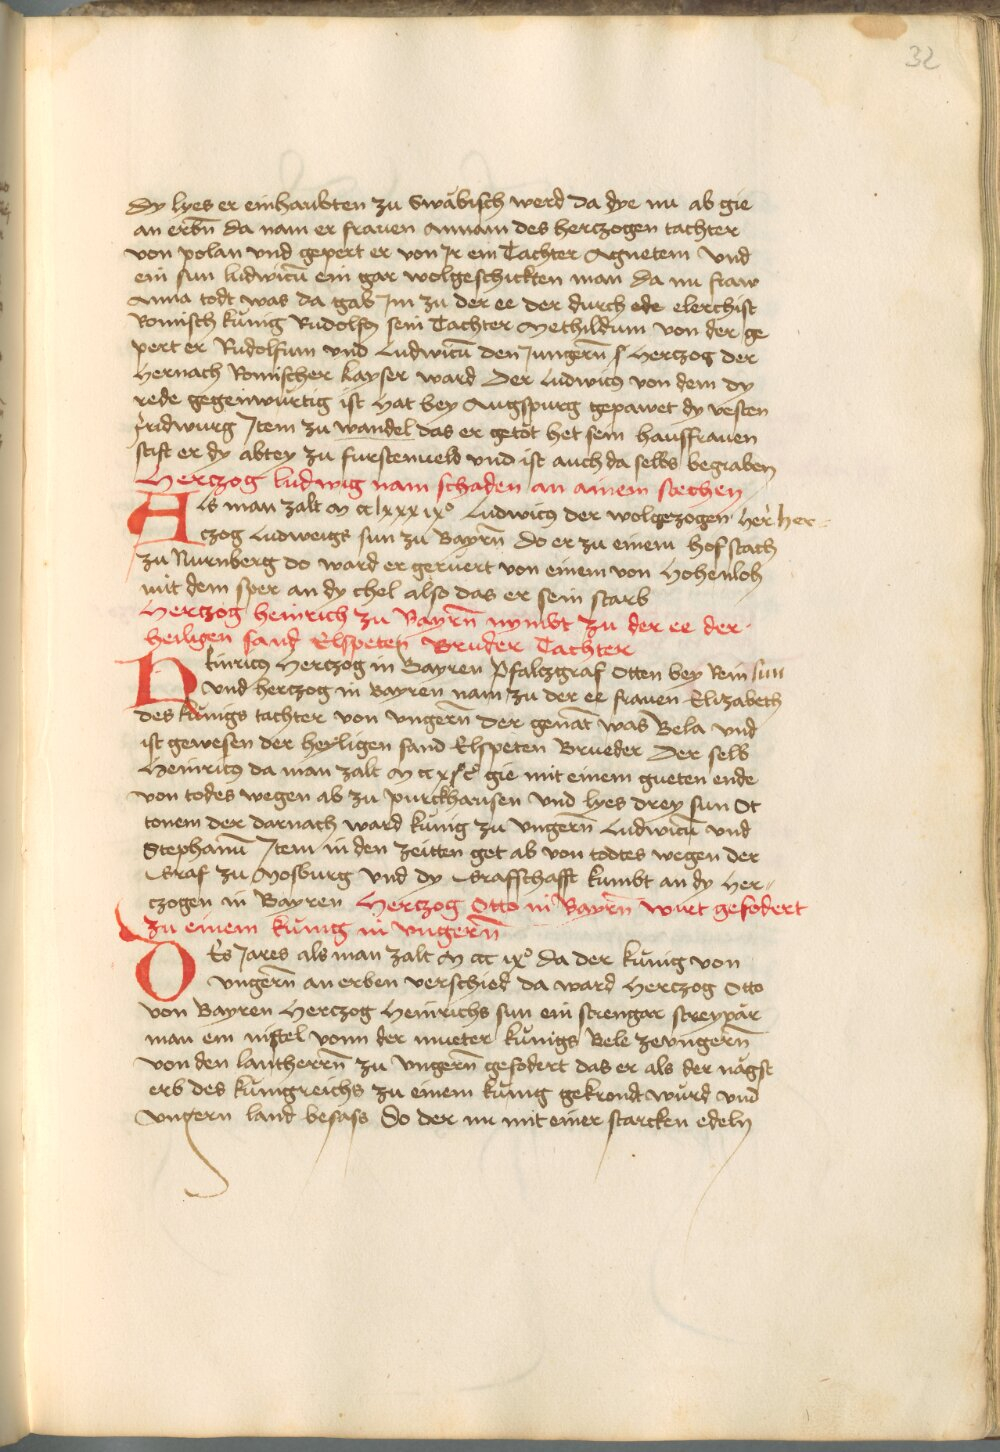 32
dy lyes er einhaubten zu Swäbisch werd da dye nu ab gie
an erbn̄ da nam er frauen Annam des herczogen tachter
von polan vnd gepert er von Jr ein Tachter Agnetem vnd
ein sun ludwicū ein gar wolgeschickten man da nu fraw
Anna todt was da gab Jm zu der ee der durch ede elerchist
Romisch kunig Rudolfꝯ sein Tachter Methildum von der ge
pert er Rudolfum vnd Ludwicū den Jungern̄ Herczog der
Hernach Romischer kayser ward Der Ludwicꝯ von dem dy
rede gegenwurtig ist Hat bey Augspurg gepawet dy vesten
fridwurg Jtem zu wandel das er getöt het sein hausfrauen
stift er dy abtey zu furstenueld vnd ist auch da selbs begraben
Herczog ludwig nam schaden an ainem stechen
Als man zalt M cc lxxx ixo Ludwicꝯ der wolgezogen her her
czog Ludweigs sun zu Bayrn̄ Do er zu einem hof stach
zu Nurnberg do ward er geruert von einem von Hohenloh
mit dem sper an dy chel also das er sein starb
Herczog heinrich zu Bayrn̄ nymbt zu der ee der
heiligen sand Elspeten Bruder Tachter
Heinricꝯ Herczog in Bayren Pfalczgraf Otten bey Rein sun
vnd herczog in Bayren nam zu der ee frauen Elizabeth
des kunigs tachter von vngern̄ der genāt was Bela vnd
ist gewesen der heyligen sand Elspeten Brueder Der selb
Heinricꝯ da man zalt M cc gie mit einem gueten ende
von todes wegen ab zu purckhausen vnd lyes drey sun Ot
tonem der darnach ward kunig zu vngern̄ Ludwicū vnd
Stephanū Jtem in den zeitten get ab von todtes wegen der
Graf zu Mosburg vnd dy Grafschafft kumbt an dy her
czogen in Bayren Herczog Otto in Bayrn̄ wirt gefodert
zu einem kunig in vngern̄
Des Jares als man zalt M ccc ixo Da der kunig von
vngern̄ an erben verschied da ward Herczog Otto
von Bayren Herczog Heinrichs sun ein strengar streypar
man ein niftel vonn der mueter kunigs Bele zevngern̄
von den lantherrn̄ zu vngern̄ gefodert das er als der nägst
erb des kunigreichs zu einem kunig gekrondt wurd vnd
vngern land besass Do der nu mit einer starcken edeln